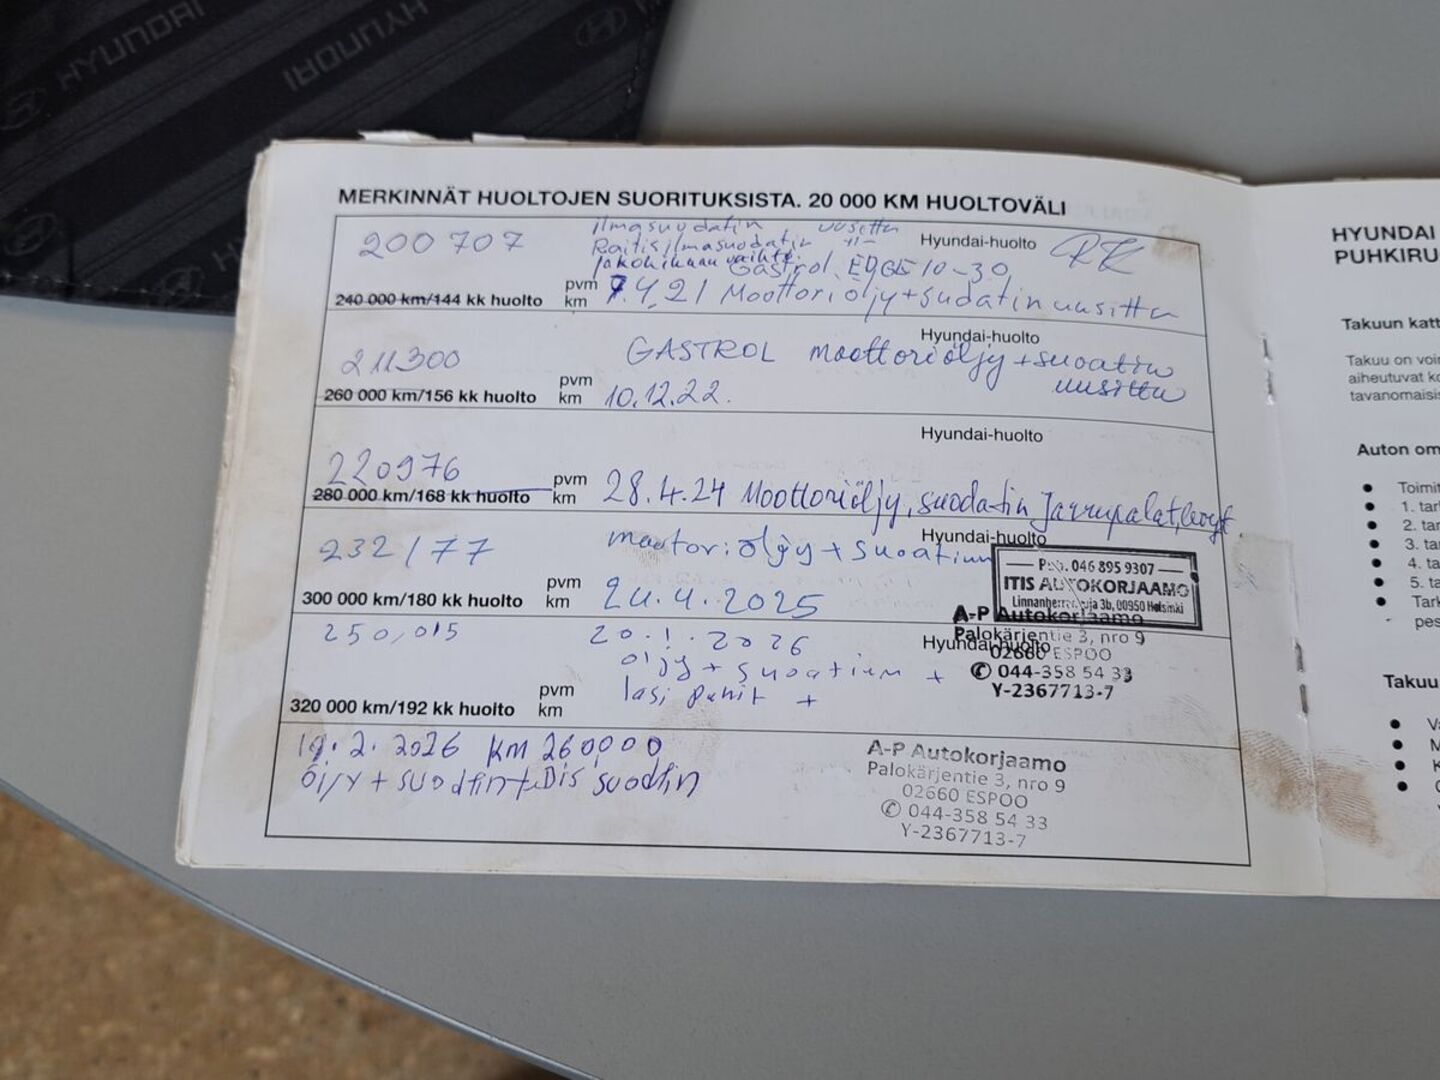 HYUNDAI
HYUNDAI
MERKINNÄT HUOLTOJEN SUORITUKSISTA. 20 000 KM HUOLTOVÄLI
200 707
ilmasuodatin uusittu
Raitisilmasuodatin -11-
Jakohihnan vaihto.
Gastrol EDGE 10-30
Hyundai-huolto
RK
240 000 km/144 kk huolto
pvm
km
7.4.21 Moottoriöljy+sudatin uusittu
211300
Hyundai-huolto
GASTROL moottoriöljy+suoatin
uusittu
260 000 km/156 kk huolto
pvm
km
10.12.22.
Hyundai-huolto
220976
280 000 km/168 kk huolto
pvm
km
28.4.24 Moottoriöljy, suodatin Jarrupalat, levyt
232177
Hyundai-huolto
mootoriöljy + suoatium
300 000 km/180 kk huolto
pvm
km
24.4.2025
046 895 9307
ITIS AUTOKORJAAMO
3b, 00950 Helsinki
250,015
20.1.2026
öljy + suoatium +
lasi puhit +
Hyundai-huolto
A-P Autokorjaamo
Palokärjentie 3, nro 9
02660 ESPOO
✆ 044-358 54 33
Y-2367713-7
320 000 km/192 kk huolto
pvm
km
19.2.2026 km 260,000
öijy + suodtin + Dis suodtin
A-P Autokorjaamo
Palokärjentie 3, nro 9
02660 ESPOO
✆ 044-358 54 33
Y-2367713-7
HYUNDAI
PUHKIRU
Takuun katt
Takuu on voi
aiheutuvat ko
tavanomaisis
Auton om
• Toimit
• 1. tar
• 2. tar
• 3. ta
• 4. ta
• 5. t
• Tark
pes
Takuu